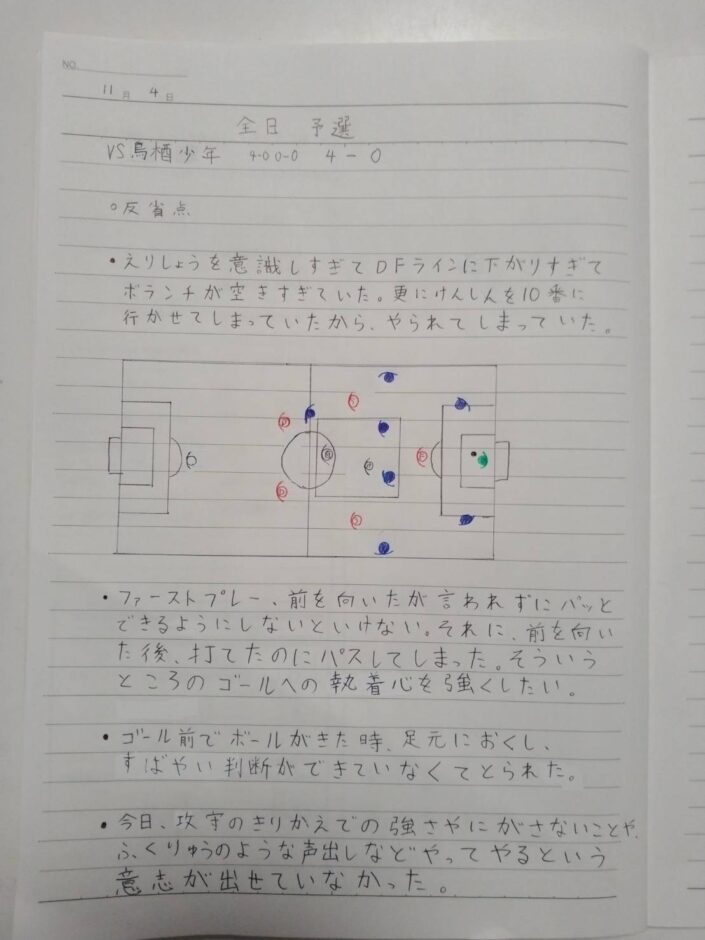 NO.
11月 4日
全日 予選
VS鳥栖少年 4-0 0-0 4-0
○反省点
・えりしょうを意識しすぎてDFラインに下がりすぎて
ボランチが空きすぎていた。更にけんしんを10番に
行かせてしまっていたから、やられてしまっていた。
・ファーストプレー、前を向いたが言われずにパッと
できるようにしないといけない。それに、前を向い
た後、打てたのにパスしてしまった。そういう
ところのゴールへの執着心を強くしたい。
・ゴール前でボールがきた時、足元におくし、
すばやい判断ができていなくてとられた。
・今日、攻守のきりかえでの強さやにがさないことや、
ふくりゅうのような声出しなどやってやるという
意志が出せていなかった。